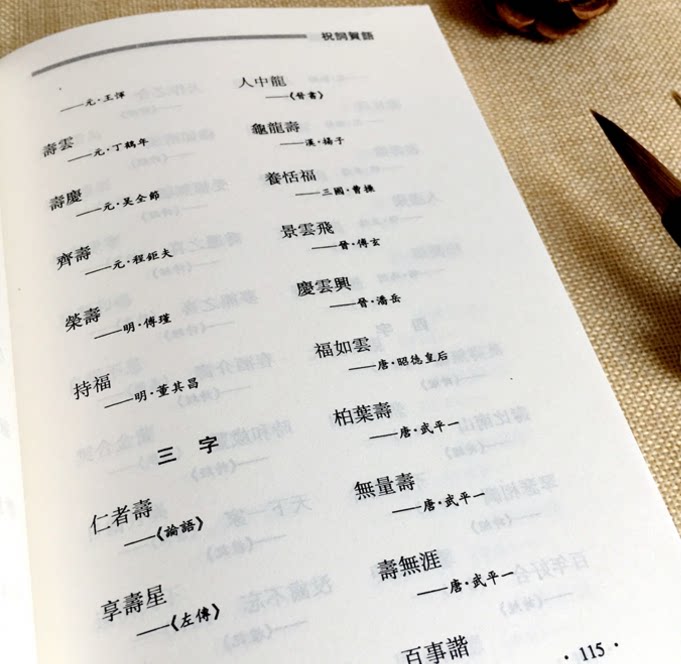 祝詞賀語
——元·王惲
壽雲
——元·丁鶴年
壽慶
——元·吴全節
齊壽
——元·程鉅夫
榮壽
——明·傅瑾
持福
——明·董其昌
三字
仁者壽
——《論語》
享壽星
——《左傳》
人中龍
——《晉書》
龜龍壽
——漢·揚子
養恬福
——三國·曹操
景雲飛
——晉·傅玄
慶雲興
——晉·潘岳
福如雲
——唐·昭德皇后
柏葉壽
——唐·武平一
無量壽
——唐·武平一
壽無涯
——唐·武平一
百事諧
·115·